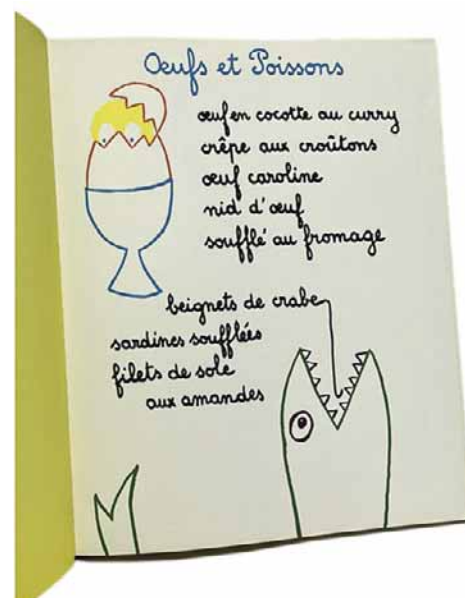 Œufs et Poissons
œuf en cocotte au curry
crêpe aux croûtons
œuf caroline
nid d'œuf
soufflé au fromage
beignets de crabe
sardines soufflées
filets de sole
aux amandes